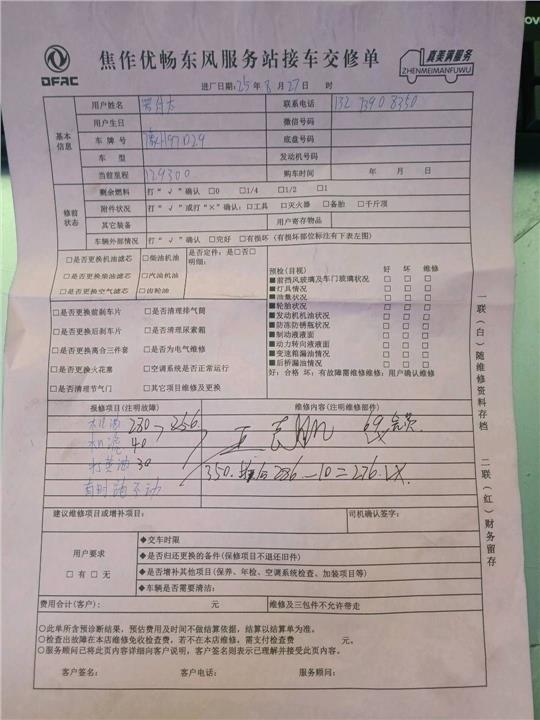 DFAC
焦作优畅东风服务站接车交修单
真美满服务
ZHENMEIMANFUWU
进厂日期：25年8月27日 时
基本信息
用户姓名
联系电话 132 7390 8350
用户生日
微信号码
车牌号
底盘号码
车型
发动机号码
当前里程 129300
购车时间 年 月 日
修前状态
剩余燃料 打“√”确认 □0 □1/4 □1/2 □1
附件状况 打“√”或打“×”确认：□工具 □灭火器 □备胎 □千斤顶
其它装备
用户寄存物品
车辆外部情况 打“√”确认 □完好 □有损坏（有损坏部位标注有下表左图）
□是否更换机油滤芯 □柴油机油
□是否更换柴油滤芯 □汽油机油
□是否更换空气滤芯 □齿轮油
是否定件：是□否□
明细：
□是否更换前刹车片 □是否清理排气筒
□是否更换后刹车片 □是否清理尿素箱
□是否更换离合三件套 □是否为电气维修
□是否更换火花塞 □空调系统是否正常运行
□是否清理节气门 □其它项目维修及更换
预检（目视） 好 坏 维修
■前挡风玻璃及车门玻璃状况 □ □ □
■灯具情况 □ □ □
■油量状况 □ □ □
■轮胎状况 □ □ □
■发动机机油状况 □ □ □
■防冻防锈瓶状况 □ □ □
■制动液液面 □ □ □
■动力转向液液面 □ □ □
■变速箱漏油情况 □ □ □
■后桥漏油情况 □ □ □
好：合格 坏：有故障需维修维修：用户确认维修
报修项目（注明故障）
维修内容（注明维修部件）
机油 230 > 256
机滤 40
打黄油 30
350. 286-10=276.
建议维修项目或增补项目：
司机确认签字：
用户要求
□有□无
◆交车时限
◆是否归还更换的备件（保修项目不退还旧件）
◆是否增补其他项目（保养、年检、空调系统检查、加装项目等）
◆车辆是否需要清洁：
费用合计（客户）： 元
维修及三包件不允许带走
○此单所含预诊断结果，预估费用及时间不做结算依据，结算以结算单为准。
○检查出故障在本店维修免收检查费，若不在本店维修，需支付检查费 元。
○服务顾问已将此页内容详细向客户说明，客户签名则表示已理解并接受此页内容。
客户签名： 客户电话： 服务顾问：
一联（白）随维修资料存档
二联（红）财务留存